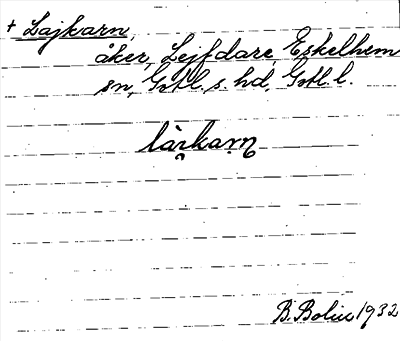 + Lajkarn,
åker, Lejfdare, Eskelhem
sn, Gotl. s. hd, Gotl. l.
làrkarn
B. Bolin 1932